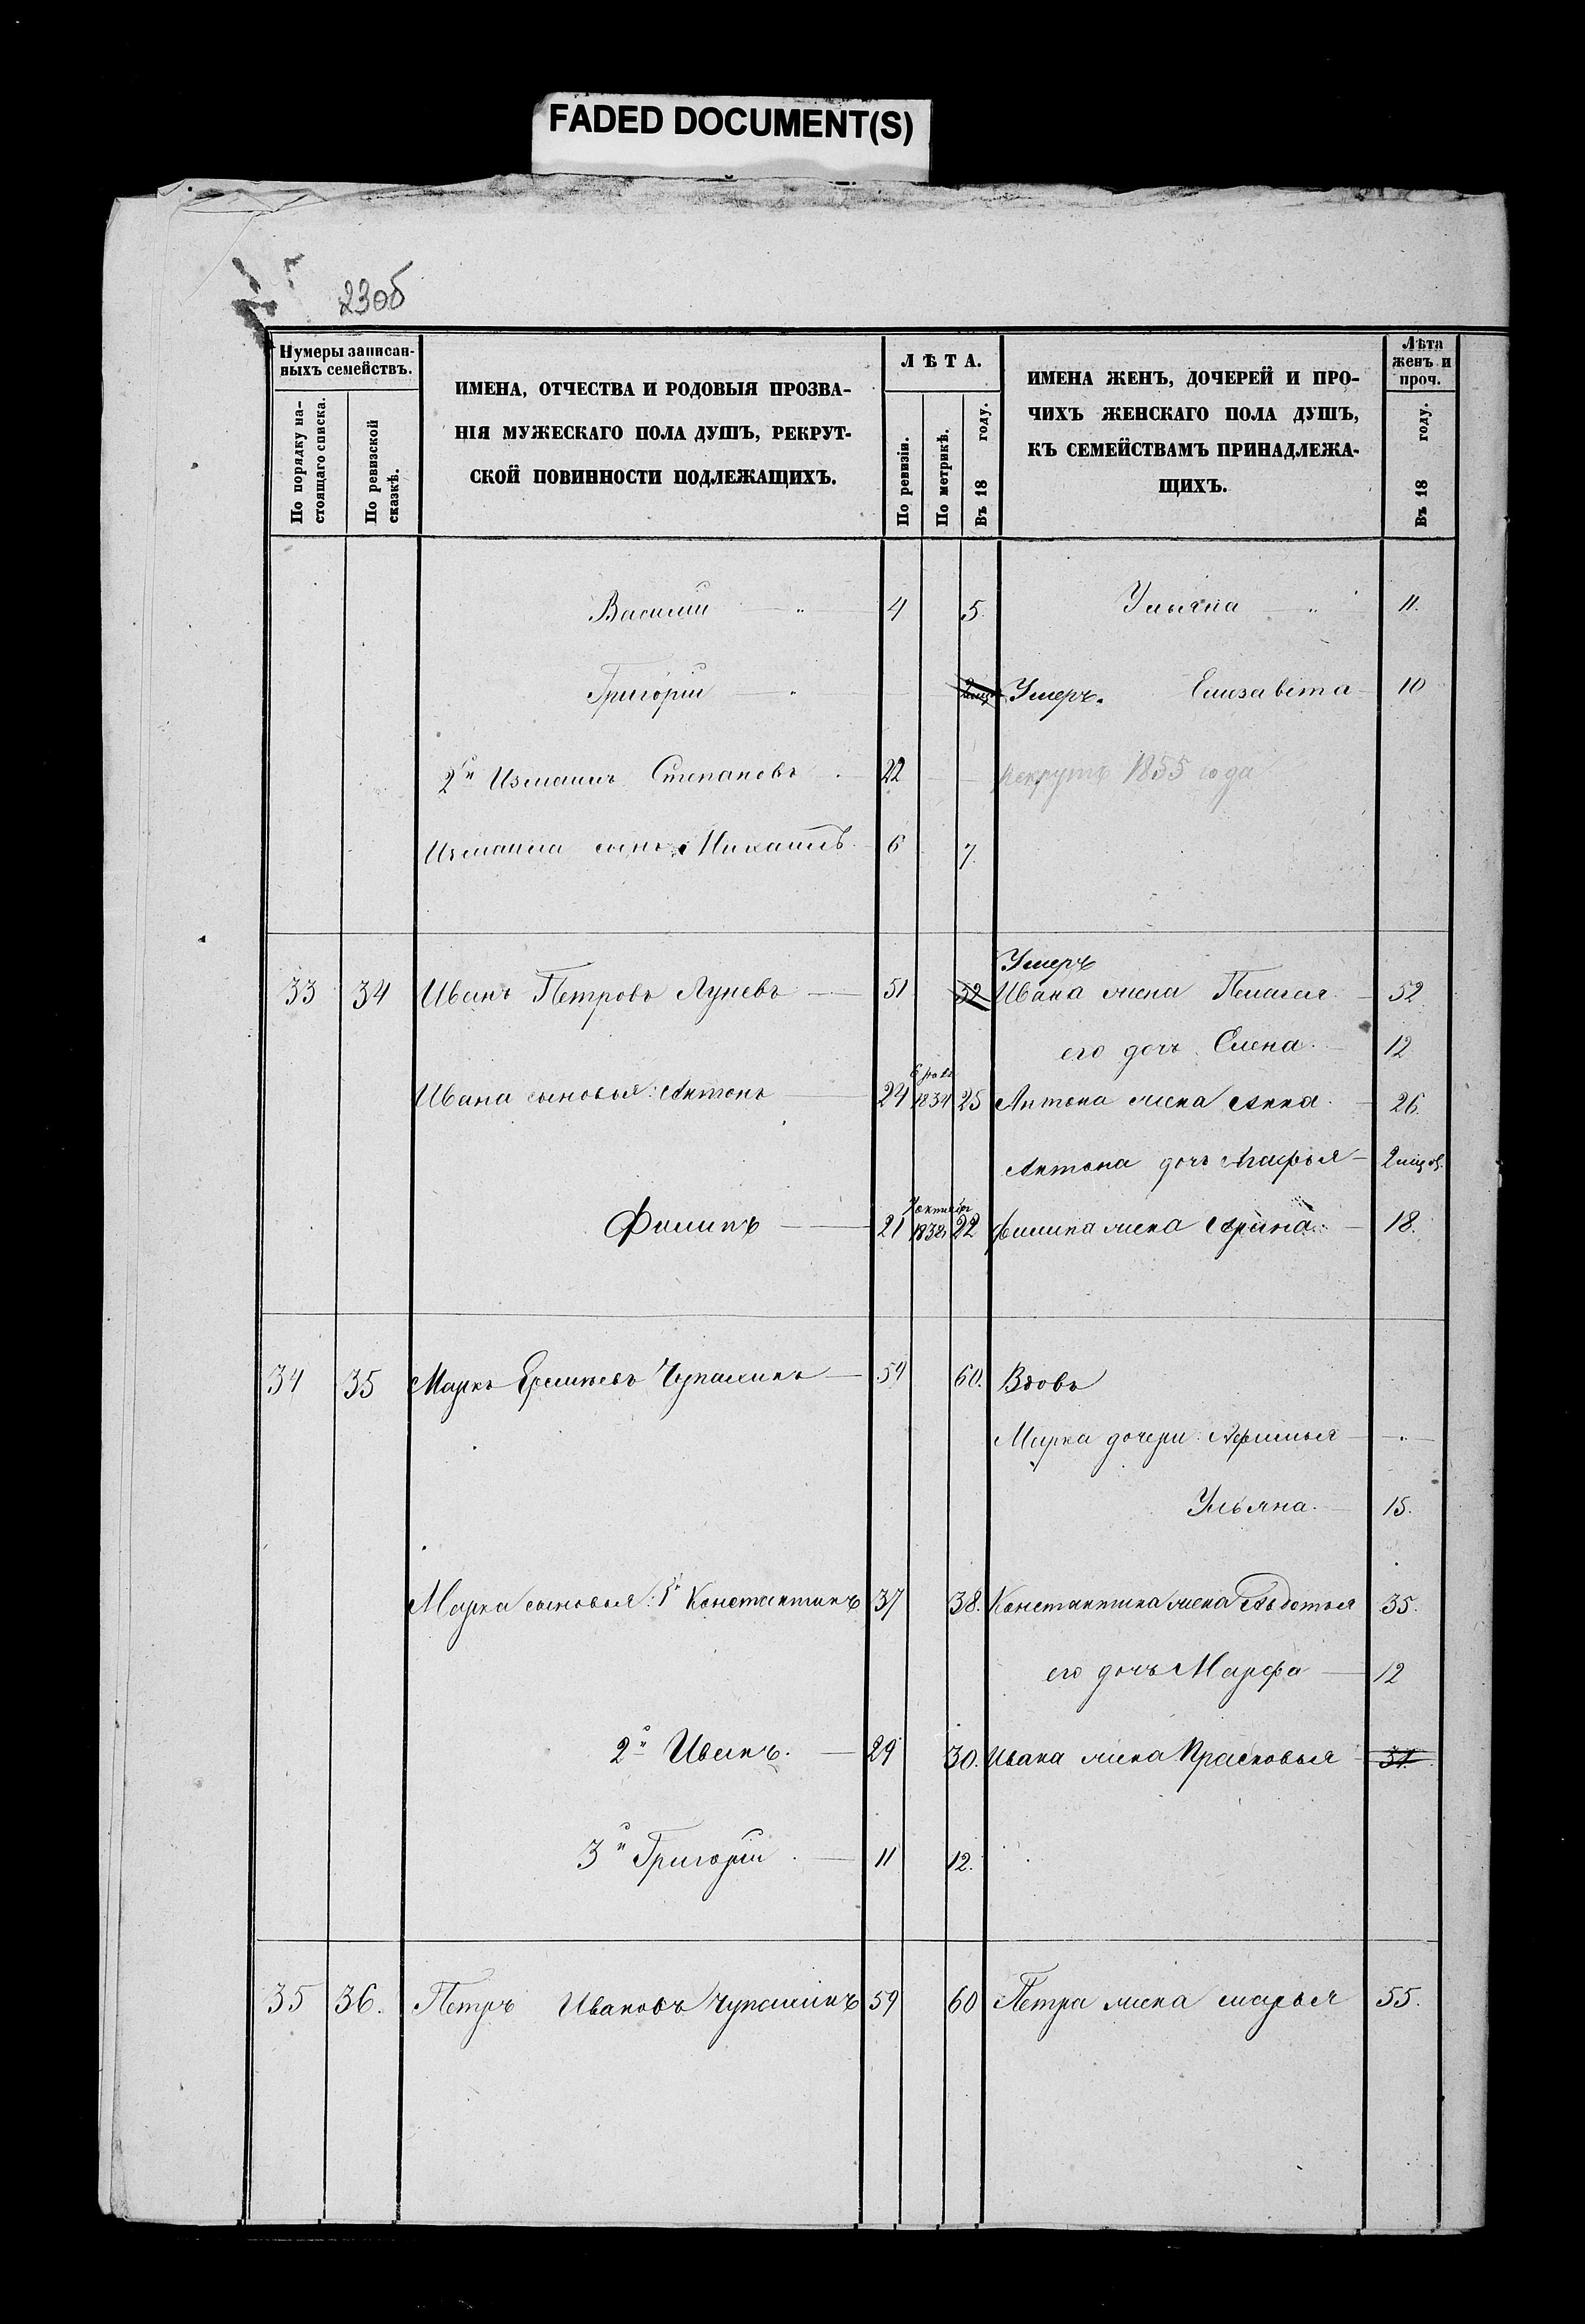 FADED DOCUMENT(S)
23об
Нумеры записан-
ныхъ семействъ.
По порядку на-
стоящаго списка.
По ревизской
сказкѣ.
ИМЕНА, ОТЧЕСТВА И РОДОВЫЯ ПРОЗВА-
НІЯ МУЖЕСКАГО ПОЛА ДУШЪ, РЕКРУТ-
СКОЙ ПОВИННОСТИ ПОДЛЕЖАЩИХЪ.
ЛѢТА.
По ревизіи.
По метрикѣ.
Въ 18 году.
ИМЕНА ЖЕНЪ, ДОЧЕРЕЙ И ПРО-
ЧИХЪ ЖЕНСКАГО ПОЛА ДУШЪ,
КЪ СЕМЕЙСТВАМЪ ПРИНАДЛЕЖА-
ЩИХЪ.
Лѣта
женъ и
проч.
Въ 18 году.
Василій — „ — 4 5. Ульяна — „ 11.
Григорій — „ Умеръ. Елизавета — 10
2й Измаилъ Степановъ 22 — — Рекрутъ 1855 года
Измаила сынъ Михаилъ 6 7.
Умеръ
33 34 Иванъ Петровъ Луневъ — 51 52 Ивана жена Пелагея — 52
его дочь Елена. — 12
Ивана сыновья: Антонъ — 24 1834 25 Антона жена Анна. — 26.
Антона дочь Агафья —
Филипъ — 21 1838 22 Филипа жена Арина — 18.
34 35 Маркъ Чупахинъ — 54 60. Вдовъ
Марка дочери: Афимья — „ —
Ульяна. — 15.
Марка сыновья: 1й Константинъ 37 38. Константина жена Авдотья 35.
его дочь Марфа — 12
2й Иванъ. — 29 30. Ивана жена Прасковья 31.
3й Григорій — 11 12.
35 36. Петръ Ивановъ Чупахинъ 59 60 Петра жена Марья 55.